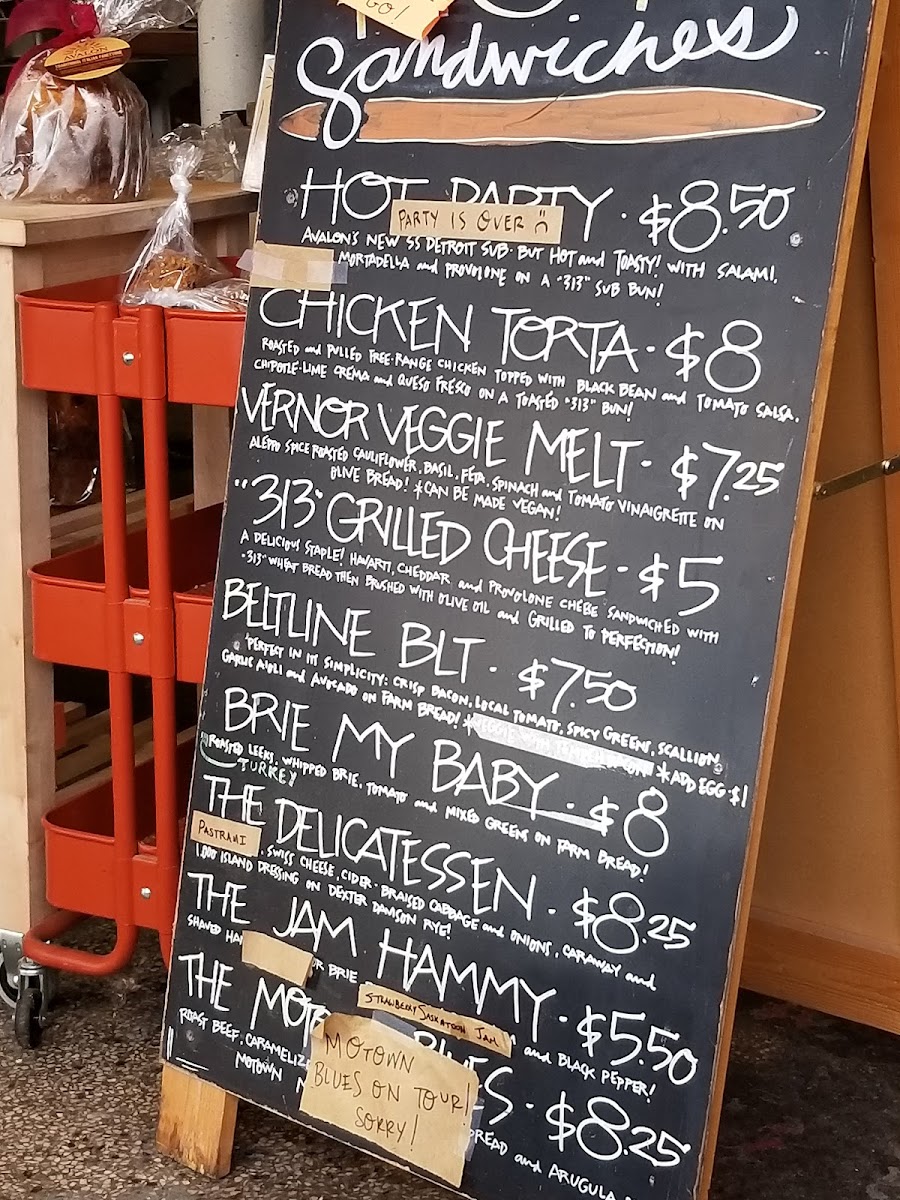 GO!
Sandwiches
AVALON
HOT PARTY · $8.50
PARTY IS OVER
AVALON'S NEW SS DETROIT SUB · BUT HOT and TOASTY! WITH SALAMI,
MORTADELLA and PROVOLONE ON A "313" SUB BUN!
CHICKEN TORTA · $8
ROASTED and PULLED FREE-RANGE CHICKEN TOPPED WITH BLACK BEAN and TOMATO SALSA,
CHIPOTLE-LIME CREMA and QUESO FRESCO ON A TOASTED "313" BUN!
VERNOR VEGGIE MELT · $7.25
ALEPPO SPICE ROASTED CAULIFLOWER, BASIL, FETA, SPINACH and TOMATO VINAIGRETTE ON
OLIVE BREAD! *CAN BE MADE VEGAN!
"313" GRILLED CHEESE · $5
A DELICIOUS STAPLE! HAVARTI, CHEDDAR and PROVOLONE CHEESE SANDWICHED WITH
"313" WHEAT BREAD THEN BRUSHED WITH OLIVE OIL and GRILLED TO PERFECTION!
BELTLINE BLT · $7.50
PERFECT IN ITS SIMPLICITY: CRISP BACON, LOCAL TOMATO, SPICY GREENS, SCALLION
GARLIC AIOLI and AVOCADO ON FARM BREAD! *VEGGIE WITH TEMPEH BACON *ADD EGG $1
BRIE MY BABY · $8
ROASTED LEEKS, WHIPPED BRIE, TOMATO and MIXED GREENS ON FARM BREAD!
TURKEY
THE DELICATESSEN · $8.25
PASTRAMI, SWISS CHEESE, CIDER-BRAISED CABBAGE and ONIONS, CARAWAY and
1,000 ISLAND DRESSING ON DEXTER DAVISON RYE!
THE JAM HAMMY · $5.50
SHAVED HA OR BRIE
STRAWBERRY SASKATOON JAM
and BLACK PEPPER!
THE MOTOWN BLUES · $8.25
MOTOWN
BLUES ON TOUR!
SORRY!
ROAST BEEF, CARAMELIZ BREAD and ARUGULA
MOTOWN